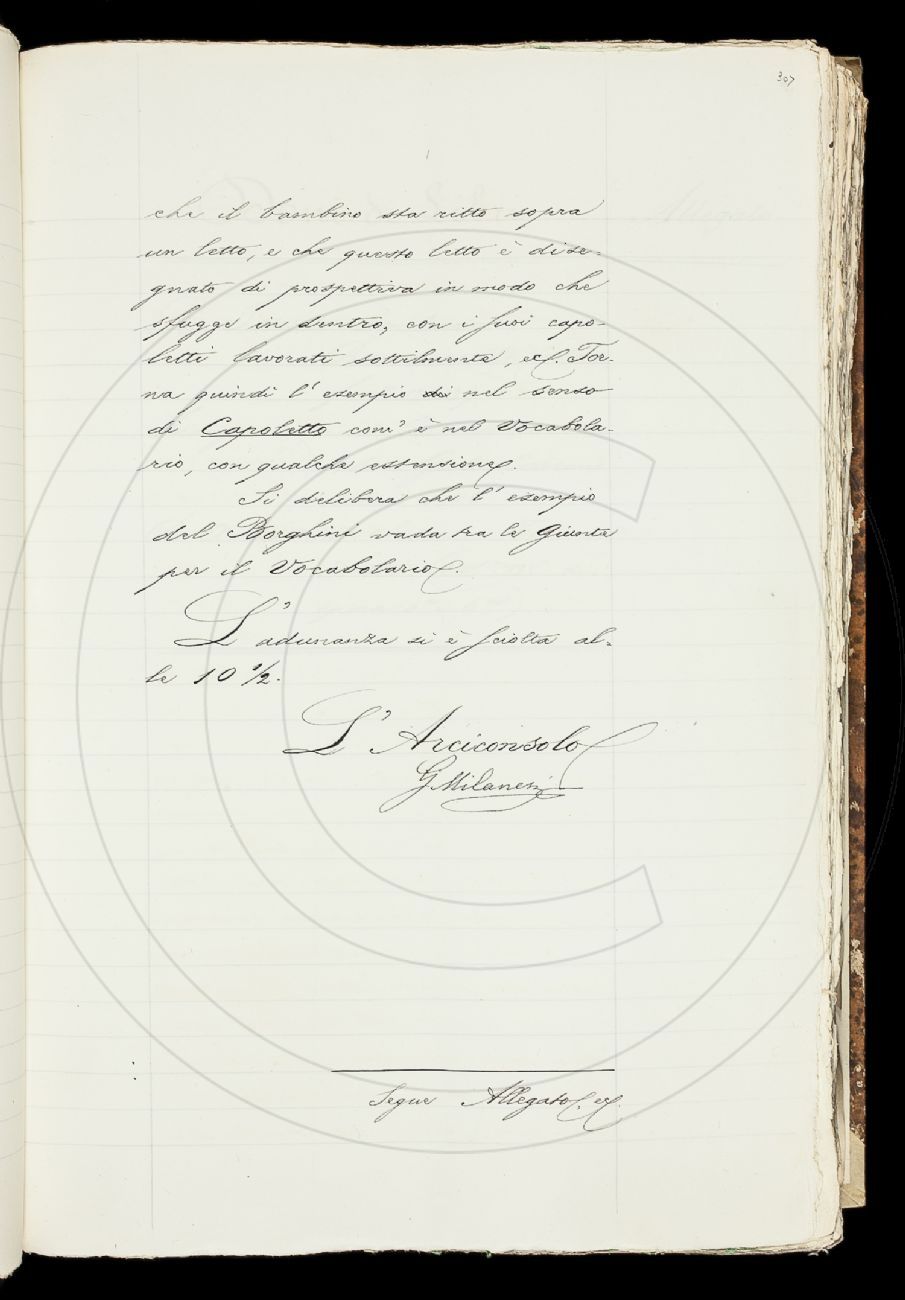 307
che il bambino sta ritto sopra
un letto, e che questo letto è dise-
gnato di prospettiva in modo che
sfugge in dentro, con i suoi capo-
letti lavorati sottilmente, ec. Tor-
na quindi l'esempio nel senso
di Capoletto com'è nel Vocabola-
rio, con qualche estensione.
Si delibera che l'esempio
del Borghini vada tra le Giunte
per il Vocabolario.
L'adunanza si è sciolta al-
le 10 1/2.
L'Arciconsolo
G Milanesi
Segue Allegato. ec.